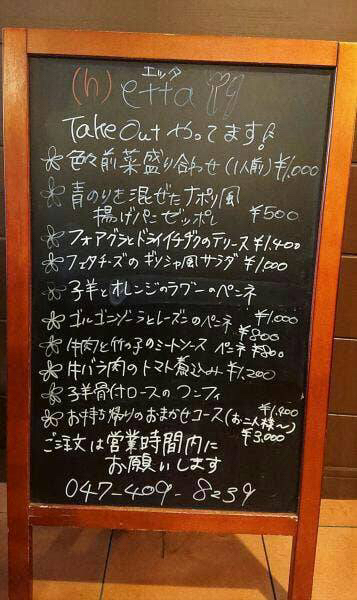 エッタ
(h) etta
Take Out やってます!
色々前菜盛り合わせ (1人前) ¥1,000
青のりを混ぜたナポリ風
揚げパン ゼッポレ ¥500
フォアグラとドライイチヂクのテリーヌ ¥1,400
フェタチーズのギリシャ風サラダ ¥1,000
子羊とオレンジのラグーのペンネ
¥1,000
ゴルゴンゾーラとレーズンのペンネ ¥800
牛肉と竹の子のミートソース ペンネ ¥800
牛バラ肉のトマト煮込み ¥1,200
子羊骨付ロースのコンフィ
¥1,900
お持ち帰りのおまかせコース (お二人様〜)
¥3,000
ご注文は営業時間内に
お願いします
047-409-8239